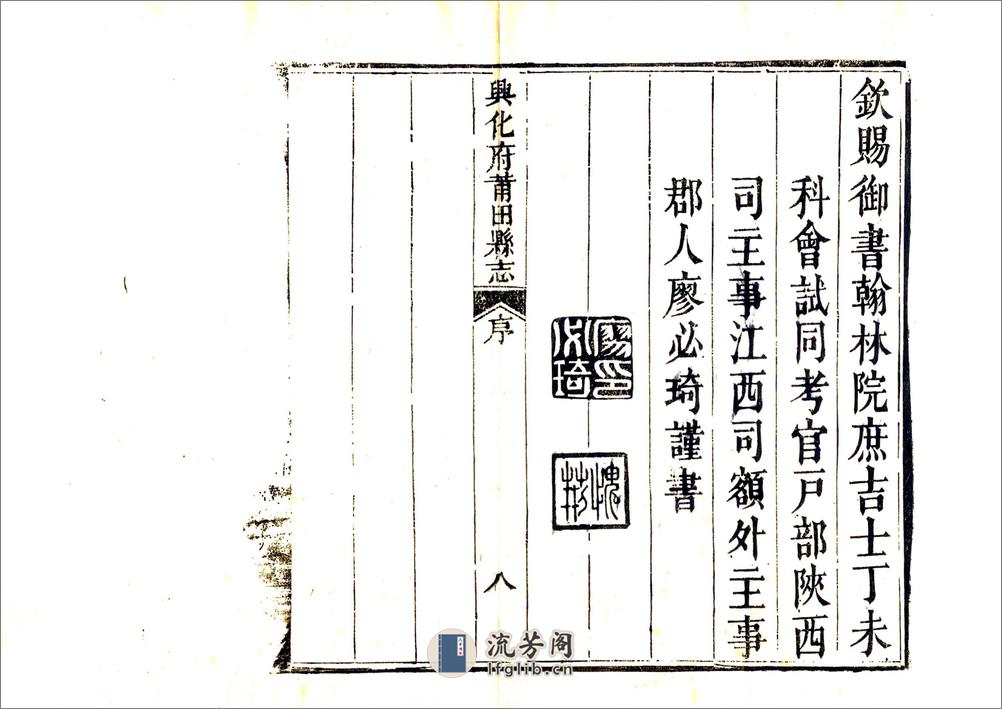 欽賜御書翰林院庶吉士丁未
科會試同考官戸部陝西
司主事江西司額外主事
郡人廖必琦謹書
廖印必琦
興化府莆田縣志
序
八
流芳阁
lfglib.cn